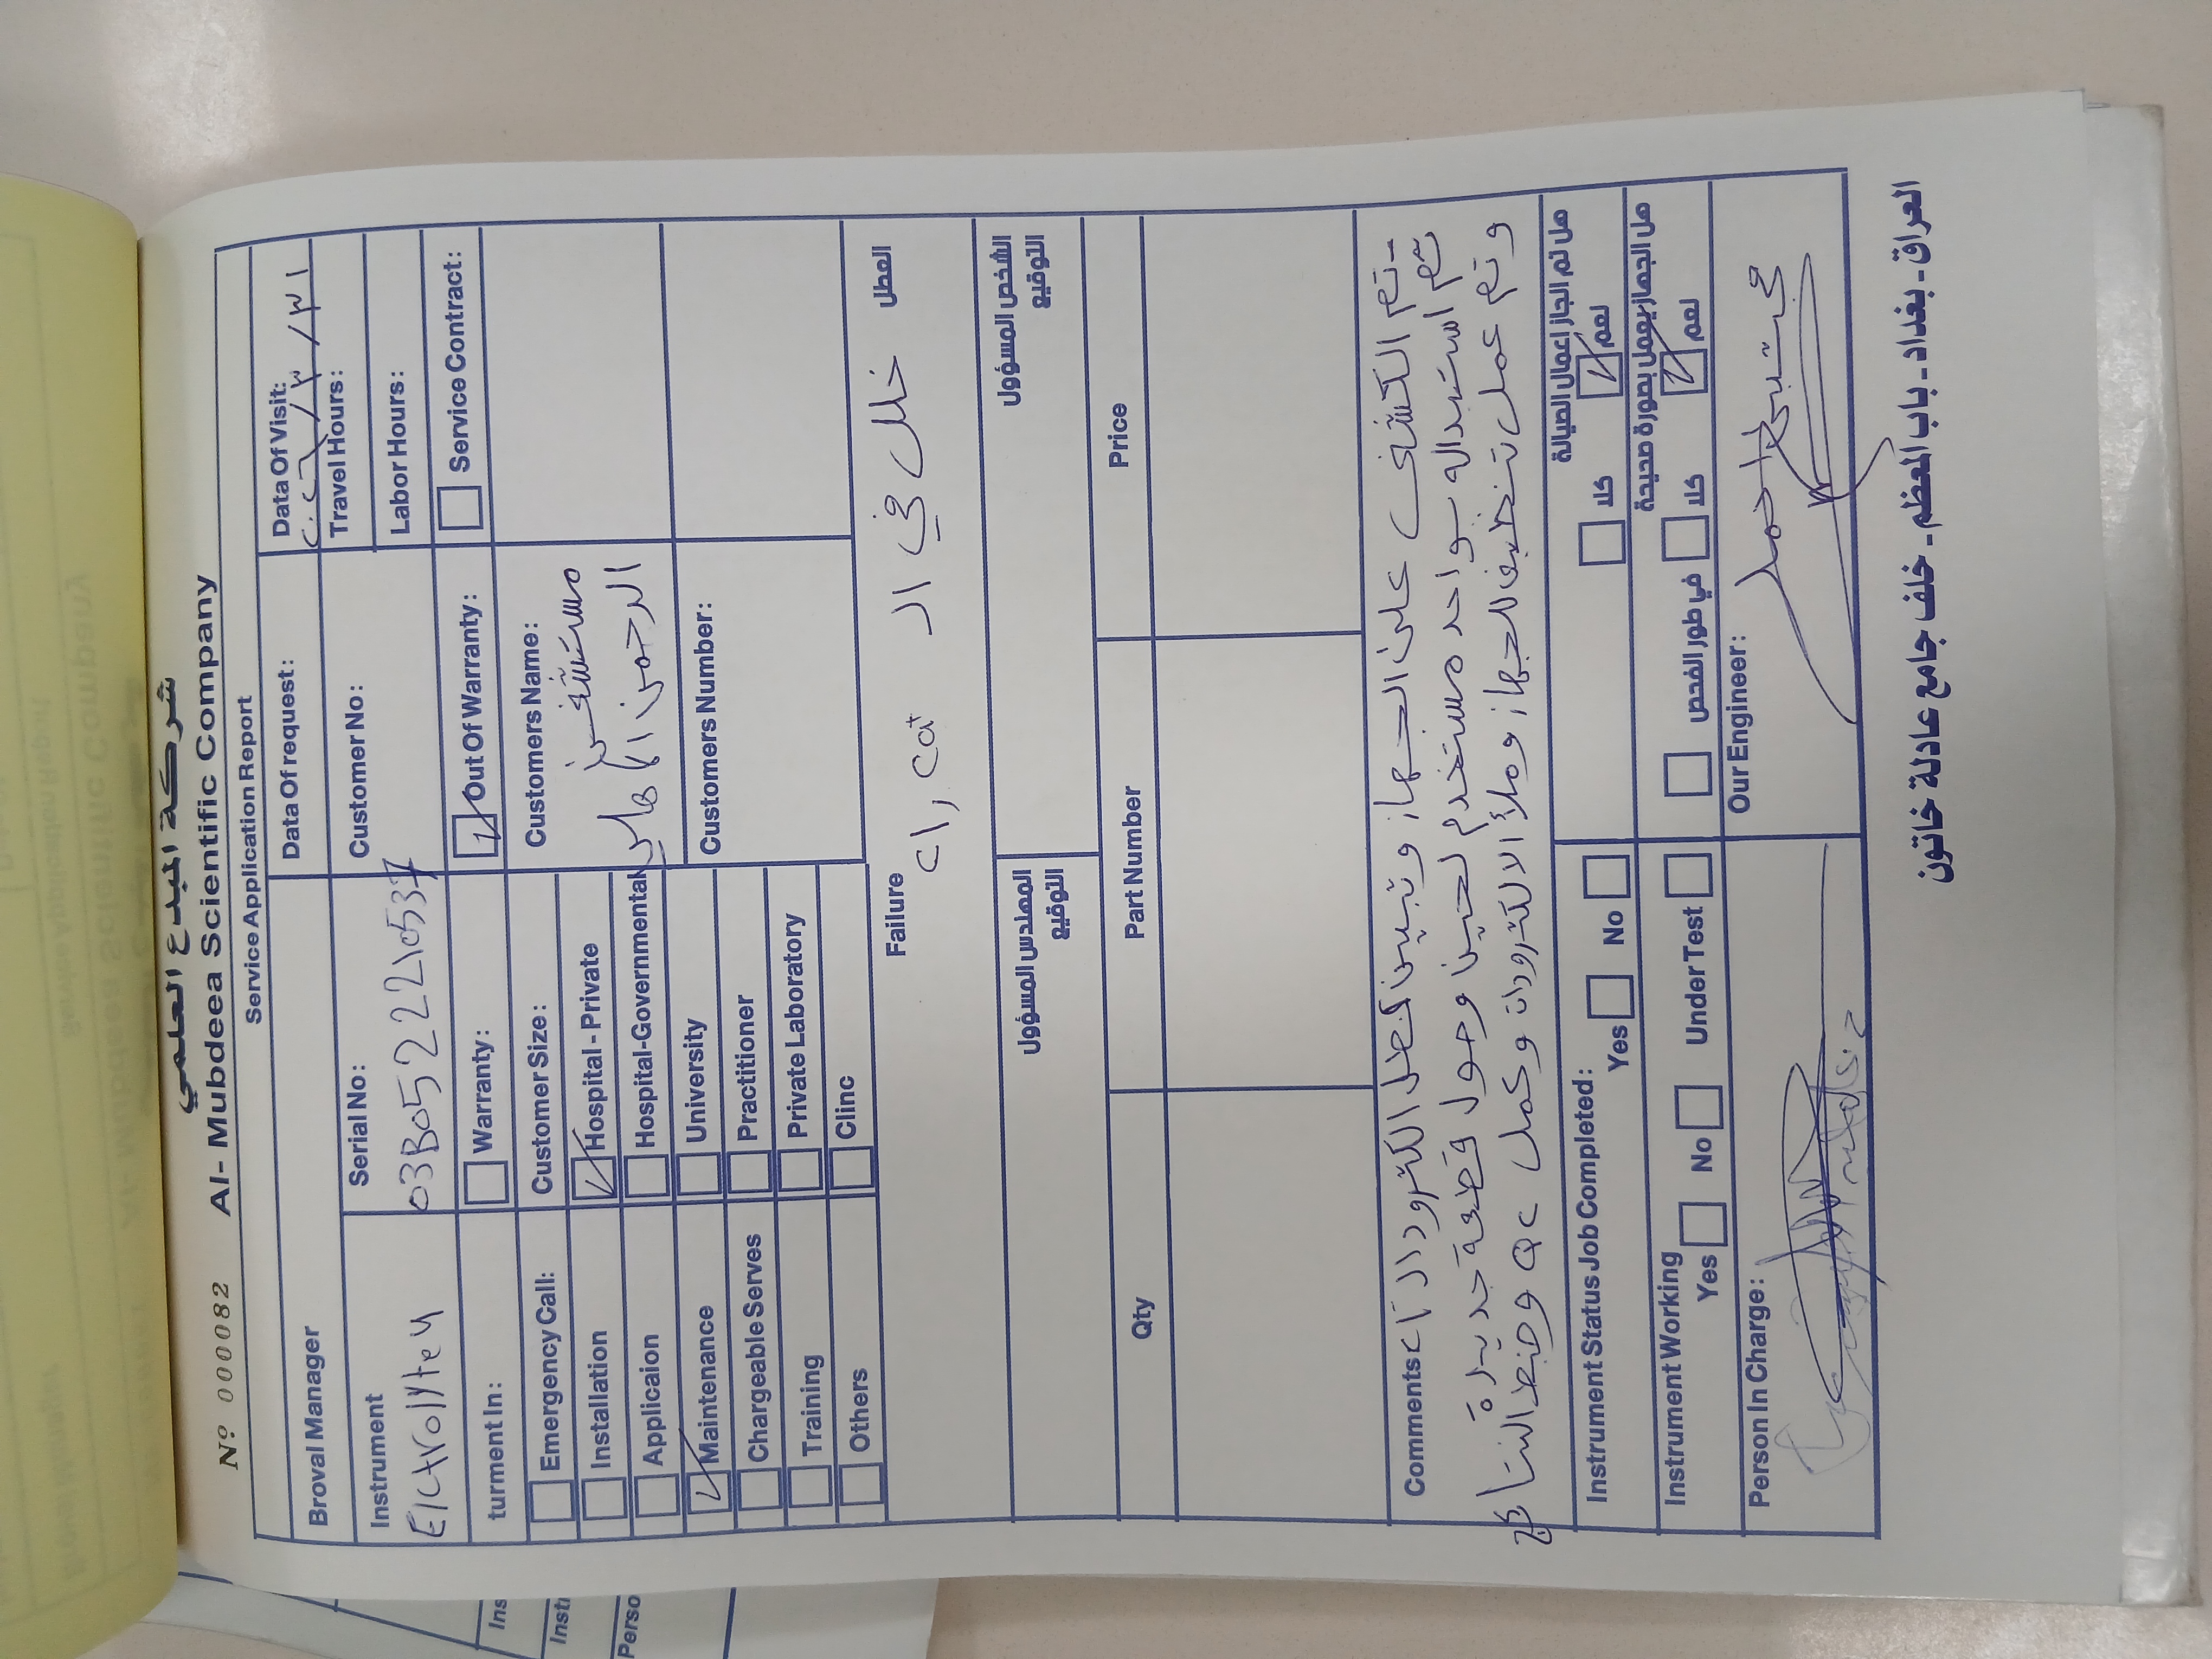 شركة المبدع العلمي
Nº 000082 Al- Mubdeea Scientific Company
Service Application Report
Broval Manager
Data Of request:
Data Of Visit:
٢٠٢٦/٣/٣١
Instrument
Elctrolyte 4
Serial No:
03B0522210537
Customer No:
Travel Hours:
Labor Hours:
turment In:
Warranty:
Out Of Warranty:
Service Contract:
Emergency Call:
Installation
Applicaion
Maintenance
Chargeable Serves
Training
Others
Customer Size:
Hospital - Private
Hospital-Governmental
University
Practitioner
Private Laboratory
Clinc
Customers Name:
مستشفى
الرحمن الاهلي
Customers Number:
Failure
العطل
خلل في ال cl, ca+
المهندس المسؤول
التوقيع
الشخص المسؤول
التوقيع
Qty Part Number Price
Comments
- تم الكشف على الجهاز وتبين تعطل الكترود ال cl
تم استبداله بواحد مستخدم لحين وصول قطعة جديدة
وتم عمل تنظيف للجهاز وملأ الالكترودات وعمل QC وضبط النتائج
Instrument Status Job Completed:
Yes No
هل تم انجاز اعمال الصيانة
كلا نعم
Instrument Working
Yes No Under Test
هل الجهاز يعمل بصورة صحيحة
في طور الفحص كلا نعم
Person In Charge:
Our Engineer:
احمد
العراق - بغداد - باب المعظم - خلف جامع عادلة خاتون